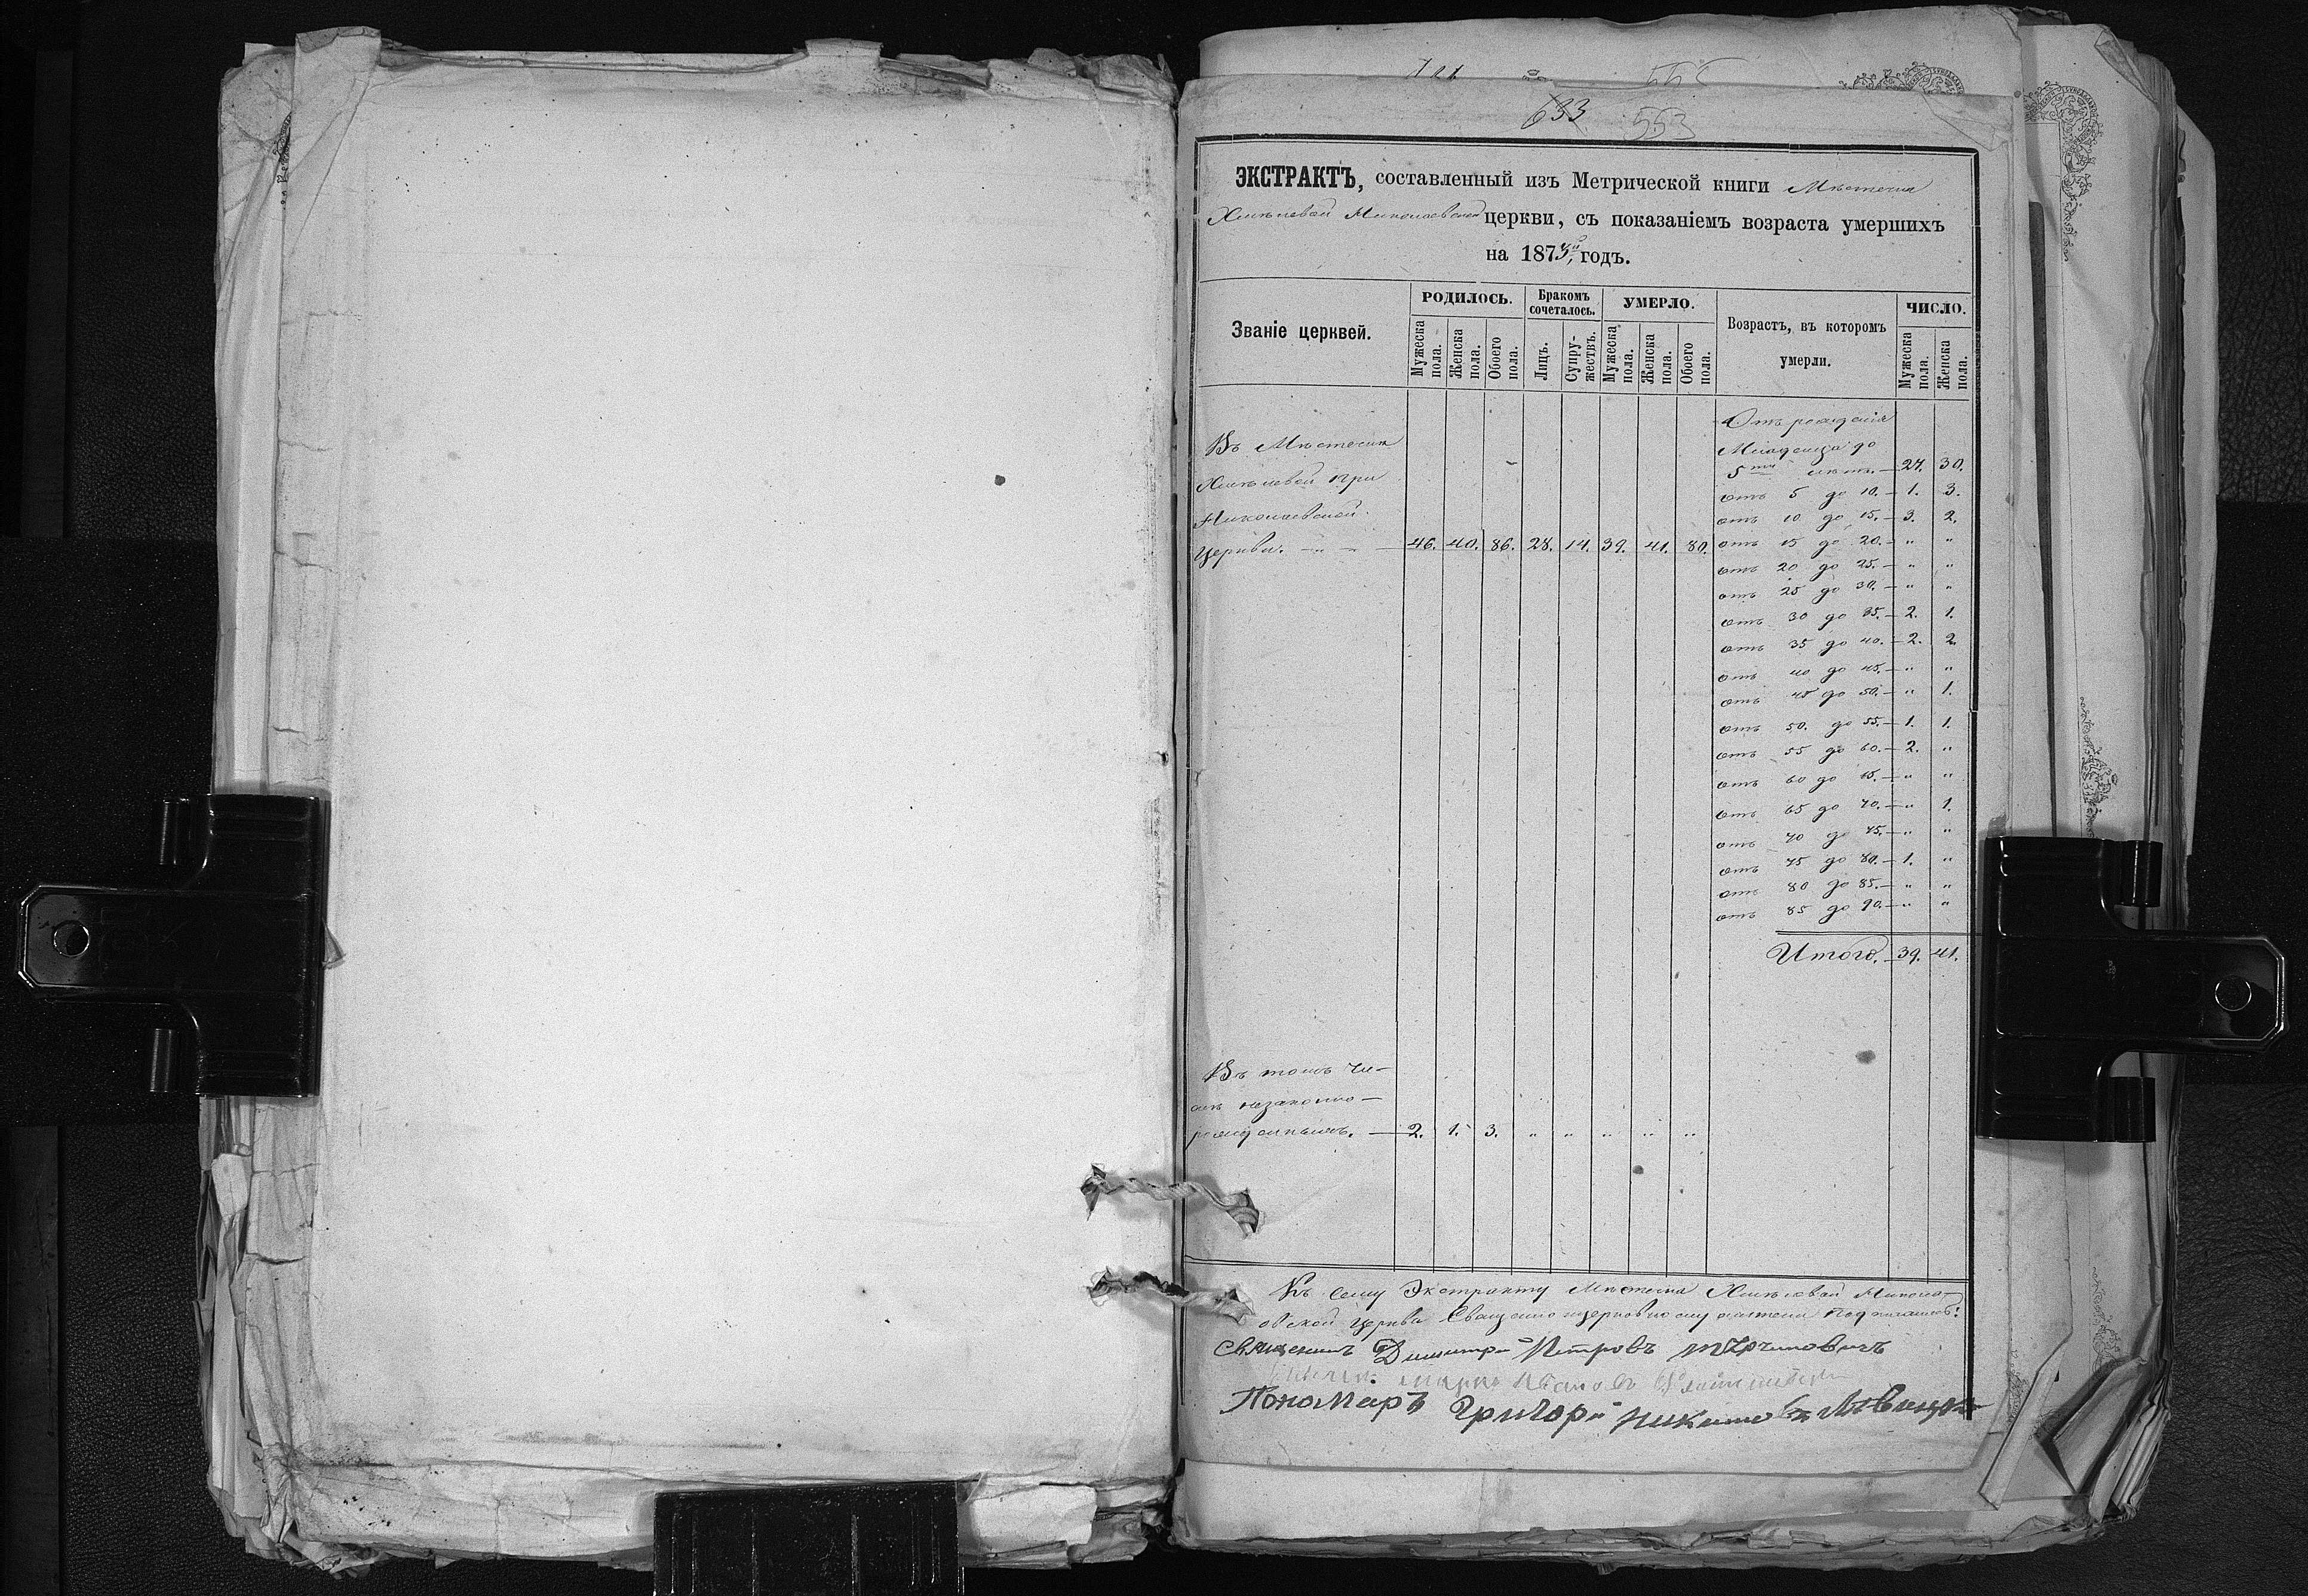 633 553
ЭКСТРАКТЪ, составленный изъ Метрической книги Мѣстечка
Хмѣлевой Николаевской церкви, съ показаніемъ возраста умершихъ
на 1873й годъ.
Званіе церквей.
РОДИЛОСЬ.
Мужеска пола.
Женска пола.
Обоего пола.
Бракомъ сочеталось.
Лицъ.
Супружествъ.
УМЕРЛО.
Мужеска пола.
Женска пола.
Обоего пола.
Возрастъ, въ которомъ
умерли.
ЧИСЛО.
Мужеска пола.
Женска пола.
Въ Мѣстечкѣ
Хмѣлевой при
Николаевской
Церкви. 46. 40. 86. 28. 14. 39. 41. 80.
Отъ рожденія
Младенца до
5ти лѣтъ. 27. 30.
отъ 5 до 10. 1. 3.
отъ 10 до 15. 3. 2.
отъ 15 до 20. " "
отъ 20 до 25. " "
отъ 25 до 30. " "
отъ 30 до 35. 2. 1.
отъ 35 до 40. 2. 2.
отъ 40 до 45. " "
отъ 45 до 50. " 1.
отъ 50. до 55. 1. 1.
отъ 55 до 60. 2. "
отъ 60 до 65. " "
отъ 65 до 70. " 1.
отъ 70 до 75. " "
отъ 75 до 80. 1. "
отъ 80 до 85. " "
отъ 85 до 90. " "
Итого. 39. 41.
Въ томъ чи-
слѣ незаконно-
рожденныхъ. 2. 1. 3. " " " " "
Къ сему Экстракту Мѣстечка Хмѣлевой Никола-
евской Церкви Священноцерковнослужители подписались:
Священникъ Димитрій Петровъ
Пономаръ Григорій